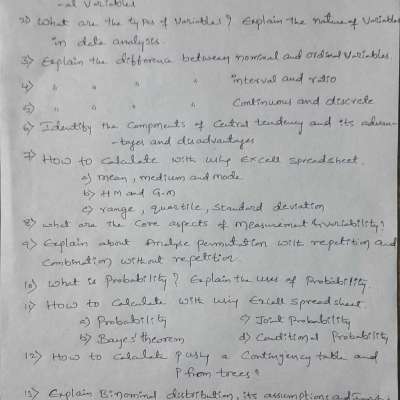 -al variables
2) What are the types of variables? Explain the nature of variables
in data analysis.
3) Explain the difference between nominal and ordinal variables.
4) " " " " interval and ratio
5) " " " " Continuous and discrete
6) Identify the Components of Central tendency and its advan-
-tages and disadvantages
7) How to Calculate with using Excell spreadsheet.
a) mean, medium and mode
b) HM and G.M
c) range, quartile, standard deviation
8) what are the Core aspects of measurement & variability?
9) Explain about Analyse permutation with repetition and
Combination without repetition.
10) What is Probability? Explain the uses of Probability.
11) How to Calculate with using Excell spreadsheet.
a) Probability c) Joint Probability
b) Bayes' theorem d) Conditional Probability
12) How to Calculate P using a Contingency table and
P from trees?
13) Explain Binominal distribution, its assumptions and